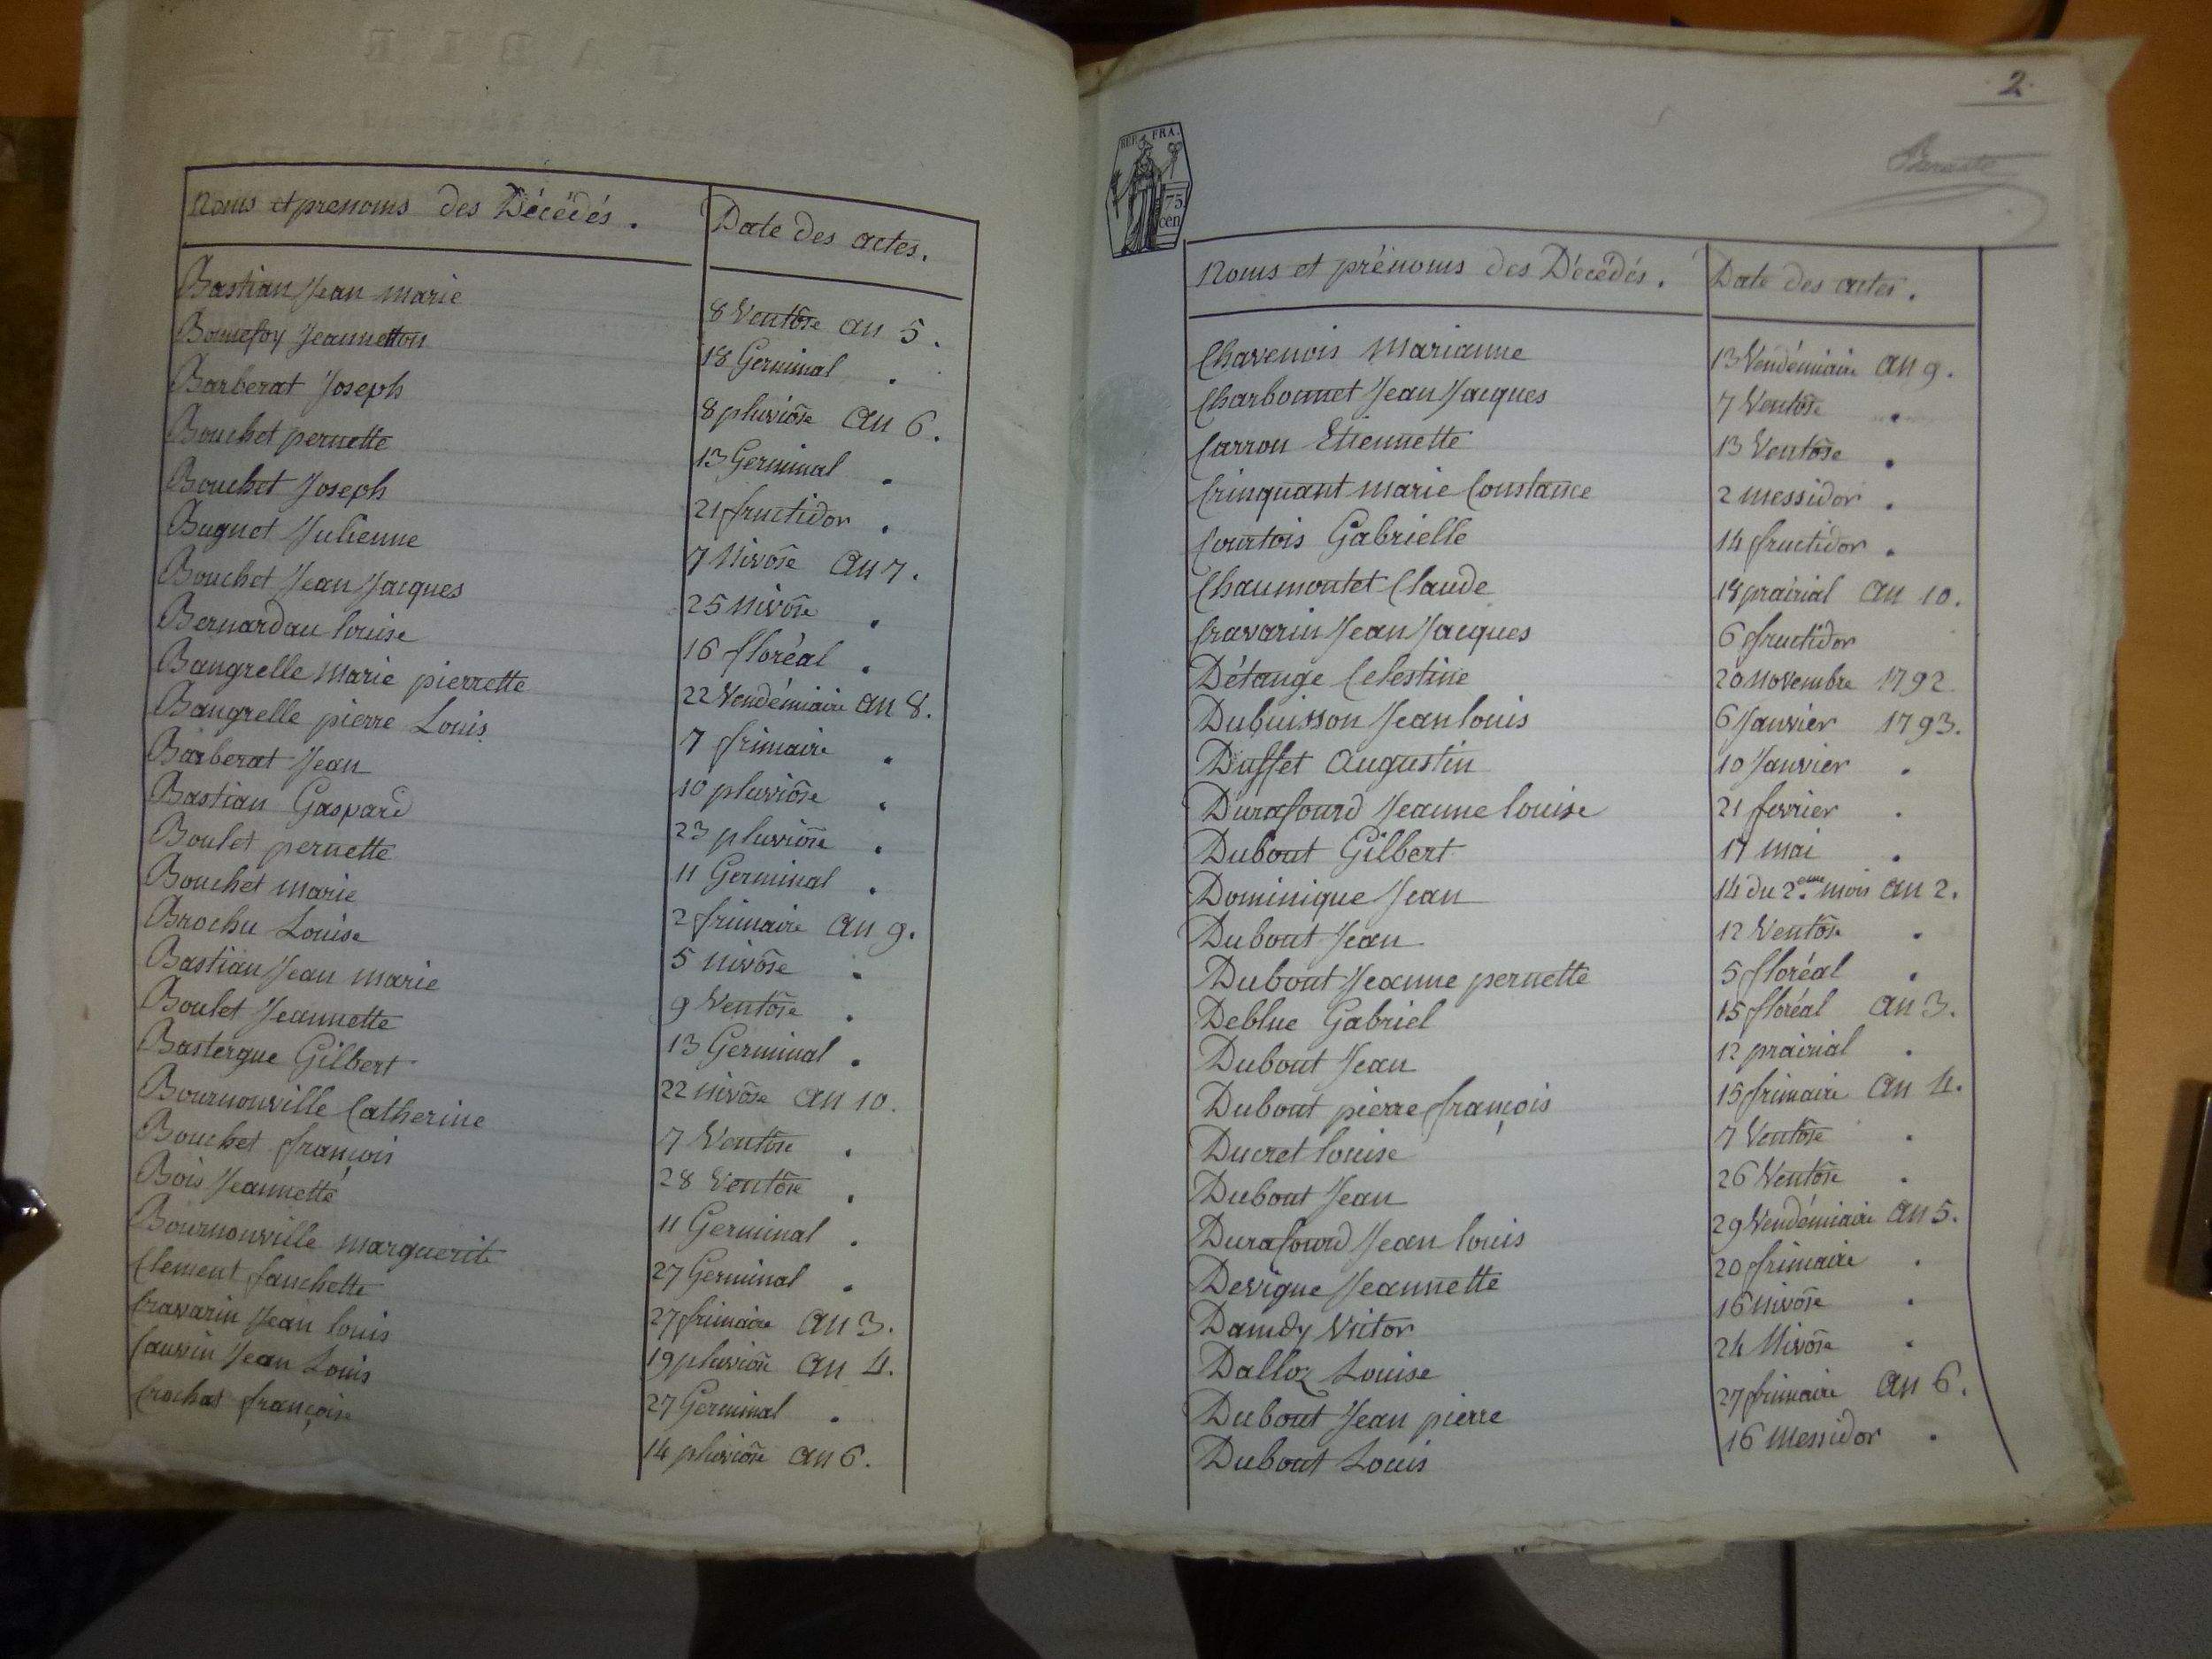 Noms et prenoms des Décédés. Date des actes.
Bastian Jean marie 8 Ventôse an 5.
Bonnefoy Jeannetton 18 Germinal .
Barberat Joseph 8 pluviôse an 6.
Bouchet pernette 13 Germinal .
Bouchet Joseph 21 fructidor .
Buguet Julienne 7 Nivôse an 7.
Bouchet Jean Jacques 25 nivôse .
Bernardau louise 16 floréal .
Bangrelle marie pierrette 22 Vendémiaire an 8.
Bangrelle pierre Louis 7 frimaire .
Barberat Jean 10 pluviôse .
Bastian Gaspard 23 pluviôse .
Boulet pernette 11 Germinal .
Bouchet marie 2 frimaire an 9.
Brochu Louise 5 nivôse .
Bastian Jean marie 9 Ventôse .
Boulet Jeannette 13 Germinal .
Bastergue Gilbert 22 nivôse an 10.
Bournonville Catherine 7 Ventôse .
Bouchet françois 28 Ventôse .
Bois Jeannette 11 Germinal .
Bournonville marguerite 27 Germinal .
Clement fanchette 27 frimaire an 3.
Cravarin Jean louis 19 pluviôse an 4.
Cauvin Jean Louis 27 Germinal .
Crochat françoise 14 pluviôse an 6.
2
REP. FRA.
75
cen
Noms et prénoms des Décédés. Date des actes.
Chavenois Marianne 13 Vendémiaire an 9.
Charbonnet Jean Jacques 7 Ventôse .
Carron Etiennette 13 Ventôse .
Crinquant marie Constance 2 messidor .
Courtois Gabrielle 14 fructidor .
Chaumontet Claude 18 prairial an 10.
Cravarin Jean Jacques 6 fructidor
Détange Celestine 20 Novembre 1792
Dubuisson Jean louis 6 Janvier 1793.
Duffet Augustin 10 Janvier .
Durafourd Jeanne louise 21 fevrier .
Dubout Gilbert 17 mai .
Dominique Jean 14 du 2.eme mois an 2.
Dubout Jean 12 Ventôse .
Dubout Jeanne pernette 5 floréal .
Deblue Gabriel 15 floréal an 3.
Dubout Jean 12 prairial .
Dubout pierre françois 15 frimaire an 4.
Ducret louise 7 Ventôse .
Dubout Jean 26 Ventôse .
Durafourd Jean louis 29 Vendémiaire an 5.
Devigue Jeannette 20 frimaire .
Damdy Victor 16 nivôse .
Dalloz Louise 24 Nivôse .
Dubout Jean pierre 27 frimaire an 6.
Dubout Louis 16 Messidor .